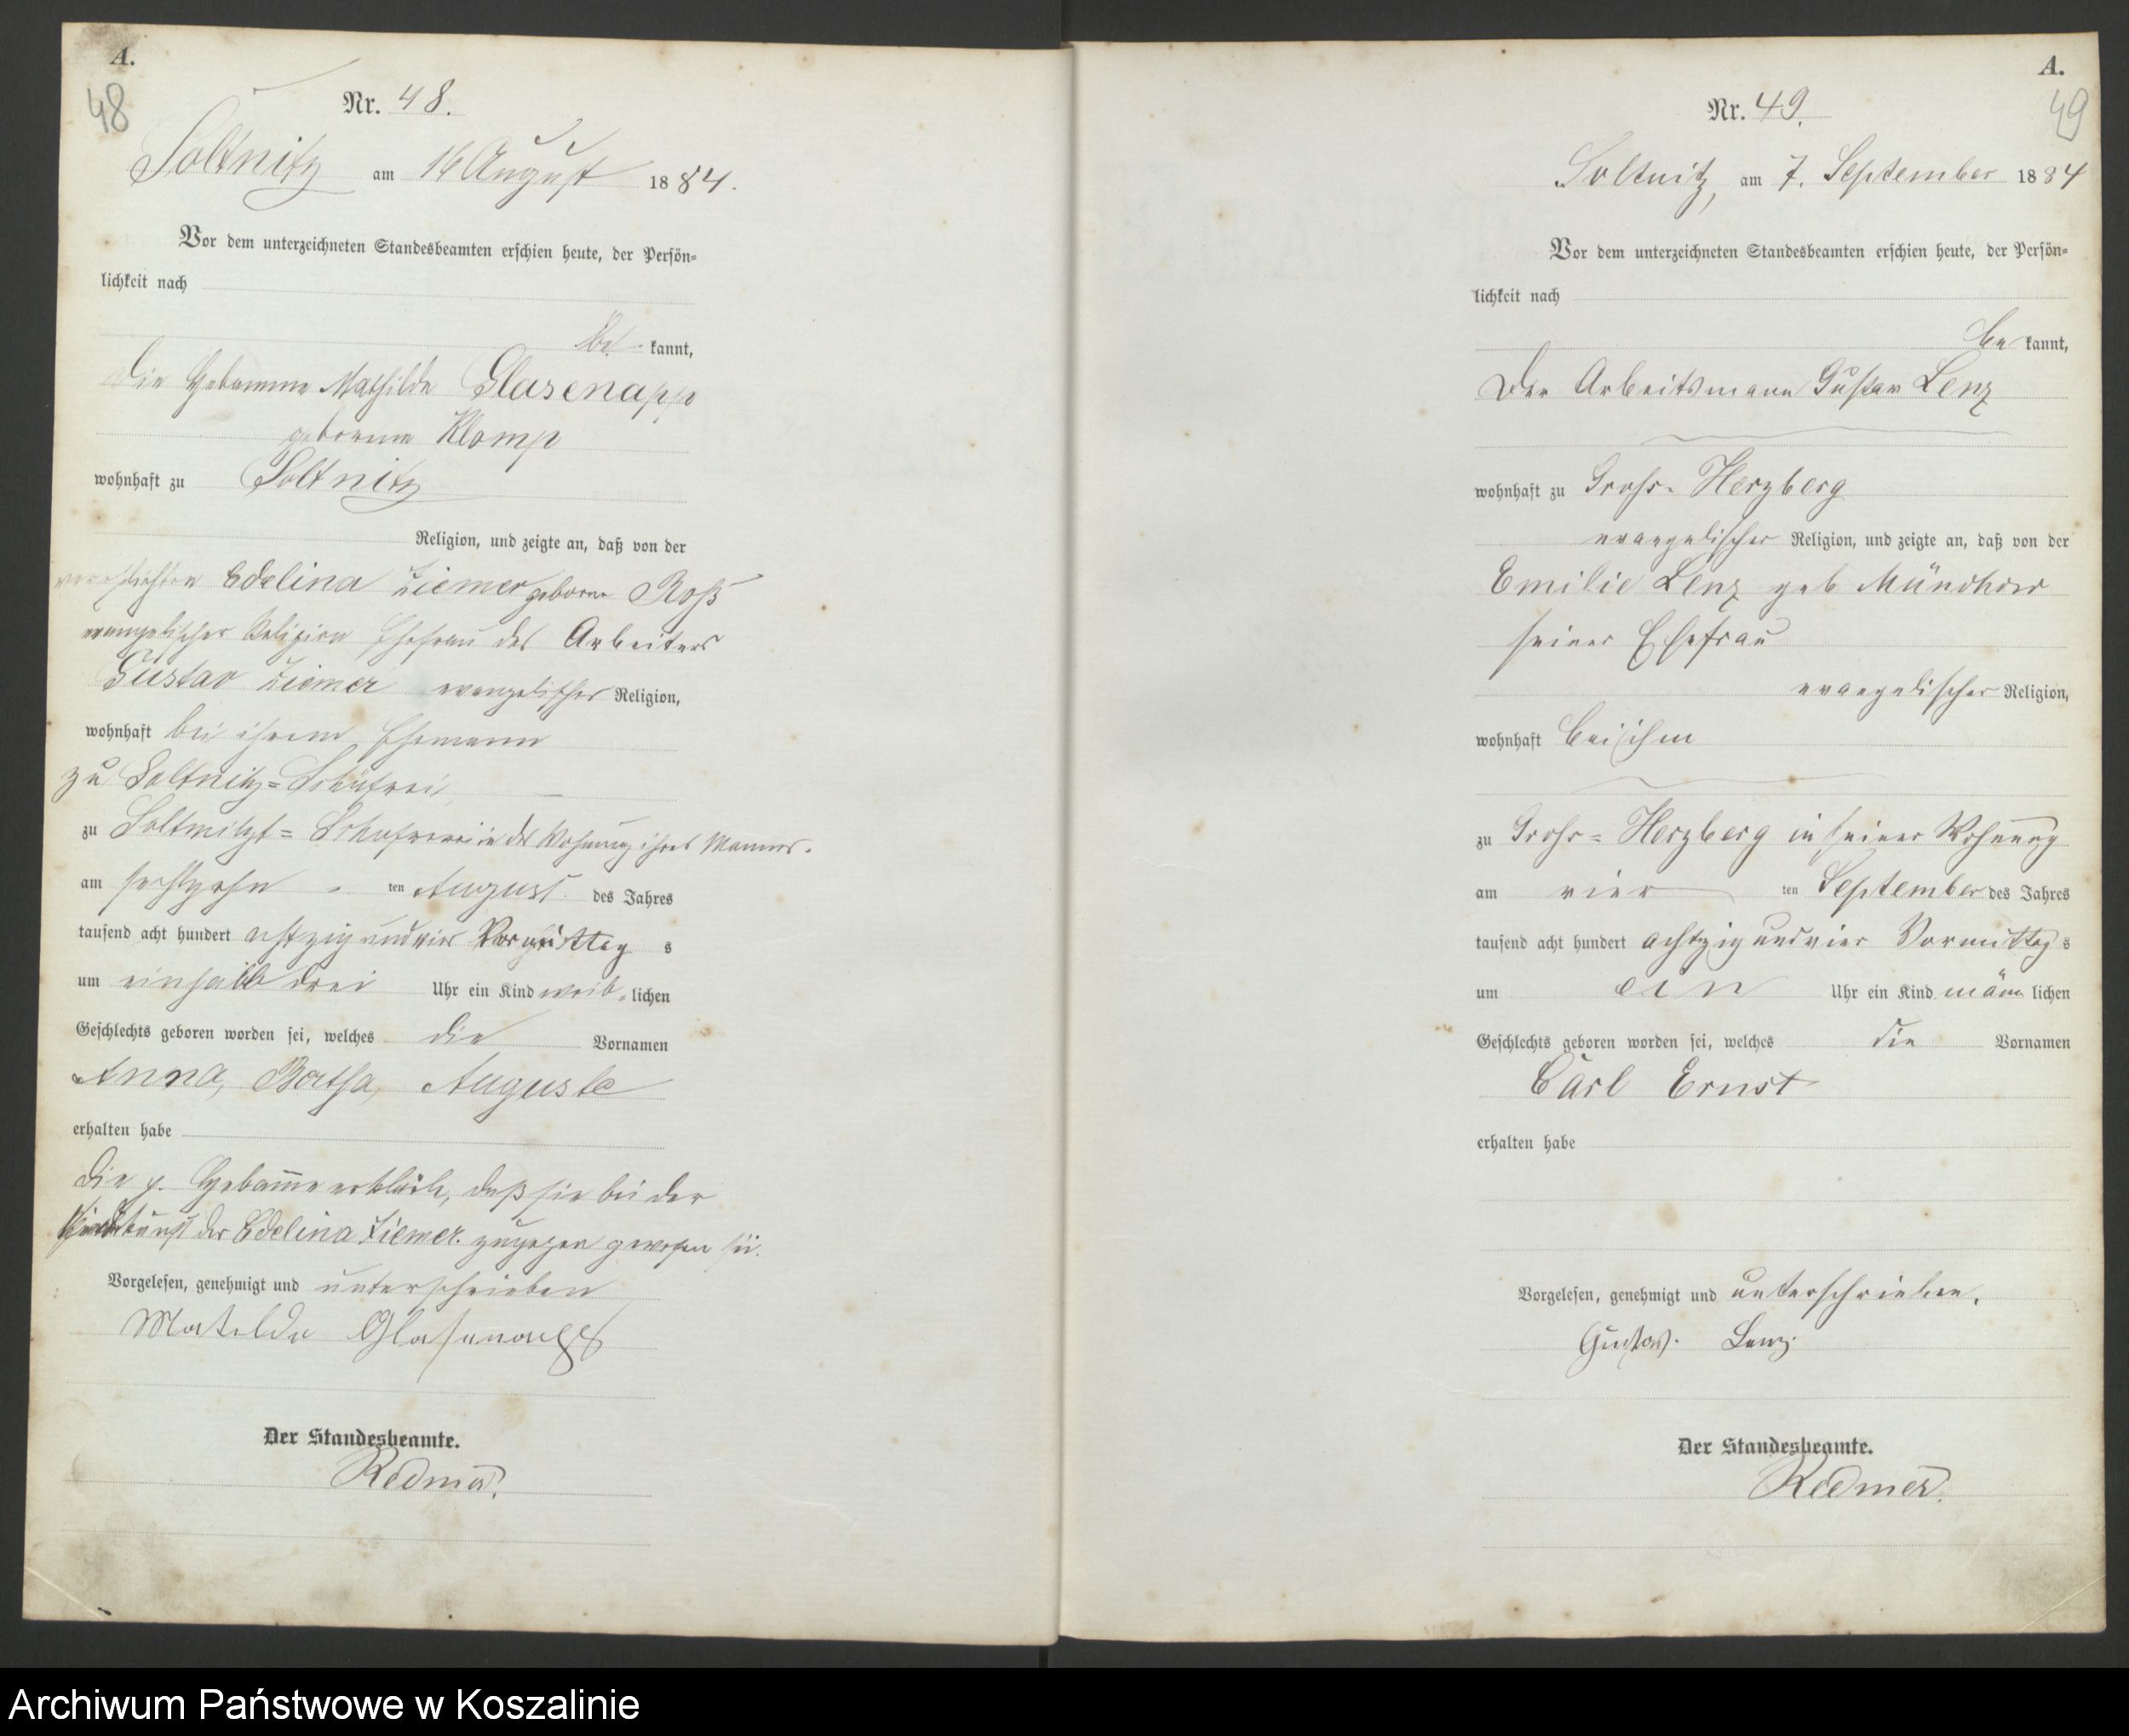 A.
48
Nr. 48.
Soltnitz am 16 August 1884.
Vor dem unterzeichneten Standesbeamten erschien heute, der Persön=
lichkeit nach
be kannt,
die Hebamme Mathilde Glasenapp
geborene Klomp
wohnhaft zu Soltnitz
Religion, und zeigte an, daß von der
verehelichten Edelina Ziemer geborne Roß
evangelischer Religion Ehefrau des Arbeiters
Gustav Ziemer evangelischer Religion,
wohnhaft bei ihrem Ehemann
zu Soltnitz=Schäferei
zu Soltnitz= in der Wohnung ihres Mannes.
am sechszehn ten August des Jahres
tausend acht hundert achtzig und vier Vormittag s
um einhalb drei Uhr ein Kind weib lichen
Geschlechts geboren worden sei, welches die Vornamen
Anna, Bertha, Auguste
erhalten habe
die p. Hebamme erklärte, daß sie bei der
der Edelina Ziemer zugegen gewesen sei.
Vorgelesen, genehmigt und unterschrieben
Matilde Glasenapp
Der Standesbeamte.
Redmer.
A.
49
Nr. 49.
Soltnitz, am 7. September 1884
Vor dem unterzeichneten Standesbeamten erschien heute, der Persön=
lichkeit nach
be kannt,
Der Arbeitsmann Gustav Lenz
wohnhaft zu Gross=Herzberg
evangelischer Religion, und zeigte an, daß von der
Emilie Lenz geb Münchow
seiner Ehefrau
evangelischer Religion,
wohnhaft bei ihm
zu Gross=Herzberg in seiner Wohnung
am vier ten September des Jahres
tausend acht hundert achtzig und vier Vormittag s
um ein Uhr ein Kind männ lichen
Geschlechts geboren worden sei, welches die Vornamen
Carl Ernst
erhalten habe
Vorgelesen, genehmigt und unterschrieben.
Gustav Lenz
Der Standesbeamte.
Redmer.
Archiwum Państwowe w Koszalinie